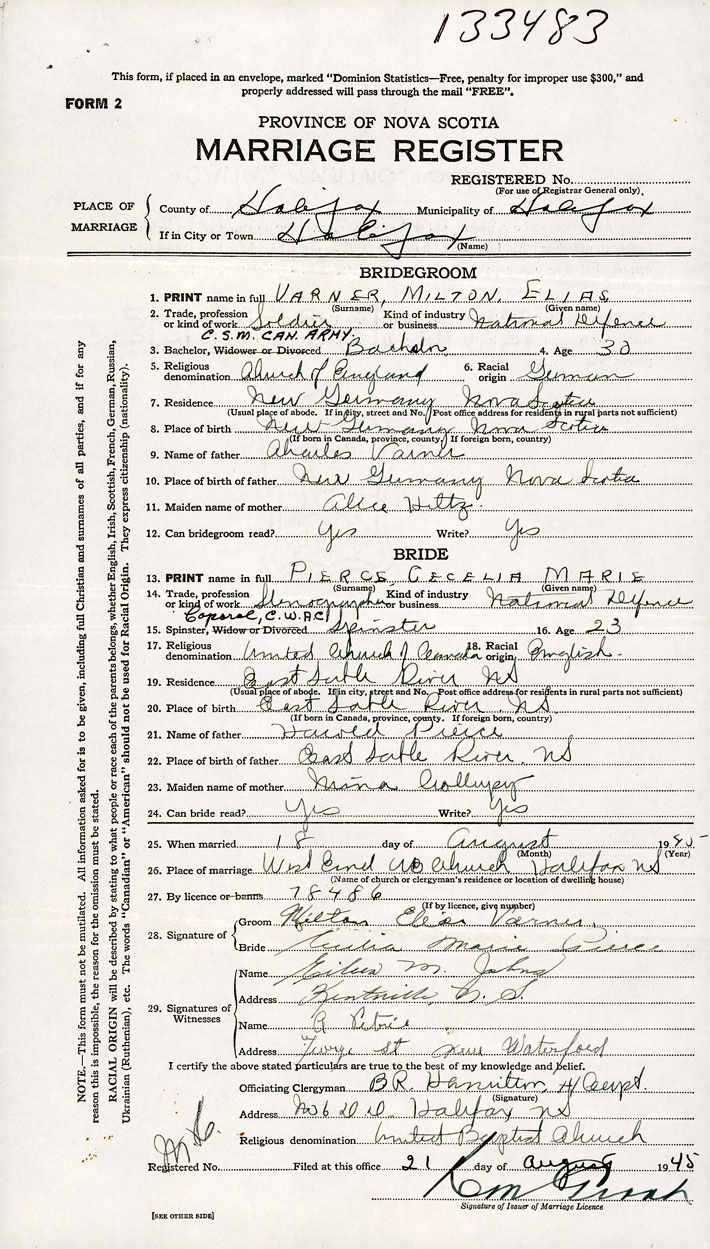 133483
This form, if placed in an envelope, marked "Dominion Statistics—Free, penalty for improper use $300," and
properly addressed will pass through the mail "FREE".
FORM 2
PROVINCE OF NOVA SCOTIA
MARRIAGE REGISTER
REGISTERED No.
(For use of Registrar General only).
PLACE OF MARRIAGE
County of Halifax Municipality of Halifax
If in City or Town Halifax
(Name)
BRIDEGROOM
1. PRINT name in full VARNER, MILTON, ELIAS
(Surname) (Given name)
2. Trade, profession or kind of work Soldier Kind of industry or business National Defence
C.S.M. CAN. ARMY.
3. Bachelor, Widower or Divorced Bachelor 4. Age 30
5. Religious denomination Church of England 6. Racial origin German
7. Residence New Germany Nova Scotia
(Usual place of abode. If in city, street and No. Post office address for residents in rural parts not sufficient)
8. Place of birth New Germany Nova Scotia
(If born in Canada, province, county. If foreign born, country)
9. Name of father Charles Varner
10. Place of birth of father New Germany Nova Scotia
11. Maiden name of mother Alice Hiltz
12. Can bridegroom read? Yes Write? Yes
BRIDE
13. PRINT name in full PIERCE, CECELIA MARIE
(Surname) (Given name)
14. Trade, profession or kind of work Stenographer Kind of industry or business National Defence
Coporal, C.W.A.C.
15. Spinster, Widow or Divorced Spinster 16. Age 23
17. Religious denomination United Church of Canada 18. Racial origin English.
19. Residence East Sable River NS
(Usual place of abode. If in city, street and No. Post office address for residents in rural parts not sufficient)
20. Place of birth East Sable River NS
(If born in Canada, province, county. If foreign born, country)
21. Name of father Harold Pierce
22. Place of birth of father East Sable River. NS
23. Maiden name of mother Mina
24. Can bride read? Yes Write? Yes
25. When married 18 day of August 1945
(Month) (Year)
26. Place of marriage West End UB Church Halifax NS
(Name of church or clergyman's residence or location of dwelling house)
27. By licence or banns 78486
(If by licence, give number)
28. Signature of
Groom Milton Elias Varner.
Bride Cecilia Marie Pierce
29. Signatures of Witnesses
Name Eileen M. Johns
Address Kentville, N. S.
Name Petrie
Address St New Waterford
I certify the above stated particulars are true to the best of my knowledge and belief.
Officiating Clergyman B.R. Hamilton, H/Capt.
(Signature)
Address Halifax NS
Religious denomination United Baptist Church
Registered No. Filed at this office 21 day of August 1945
Signature of Issuer of Marriage Licence
[SEE OTHER SIDE]
NOTE.—This form must not be mutilated. All information asked for is to be given, including full Christian and surnames of all parties, and if for any
reason this is impossible, the reason for the omission must be stated.
RACIAL ORIGIN will be described by stating to what people or race each of the parents belongs, whether English, Irish, Scottish, French, German, Russian,
Ukrainian (Ruthenian), etc. The words "Canadian" or "American" should not be used for Racial Origin. They express citizenship (nationality).